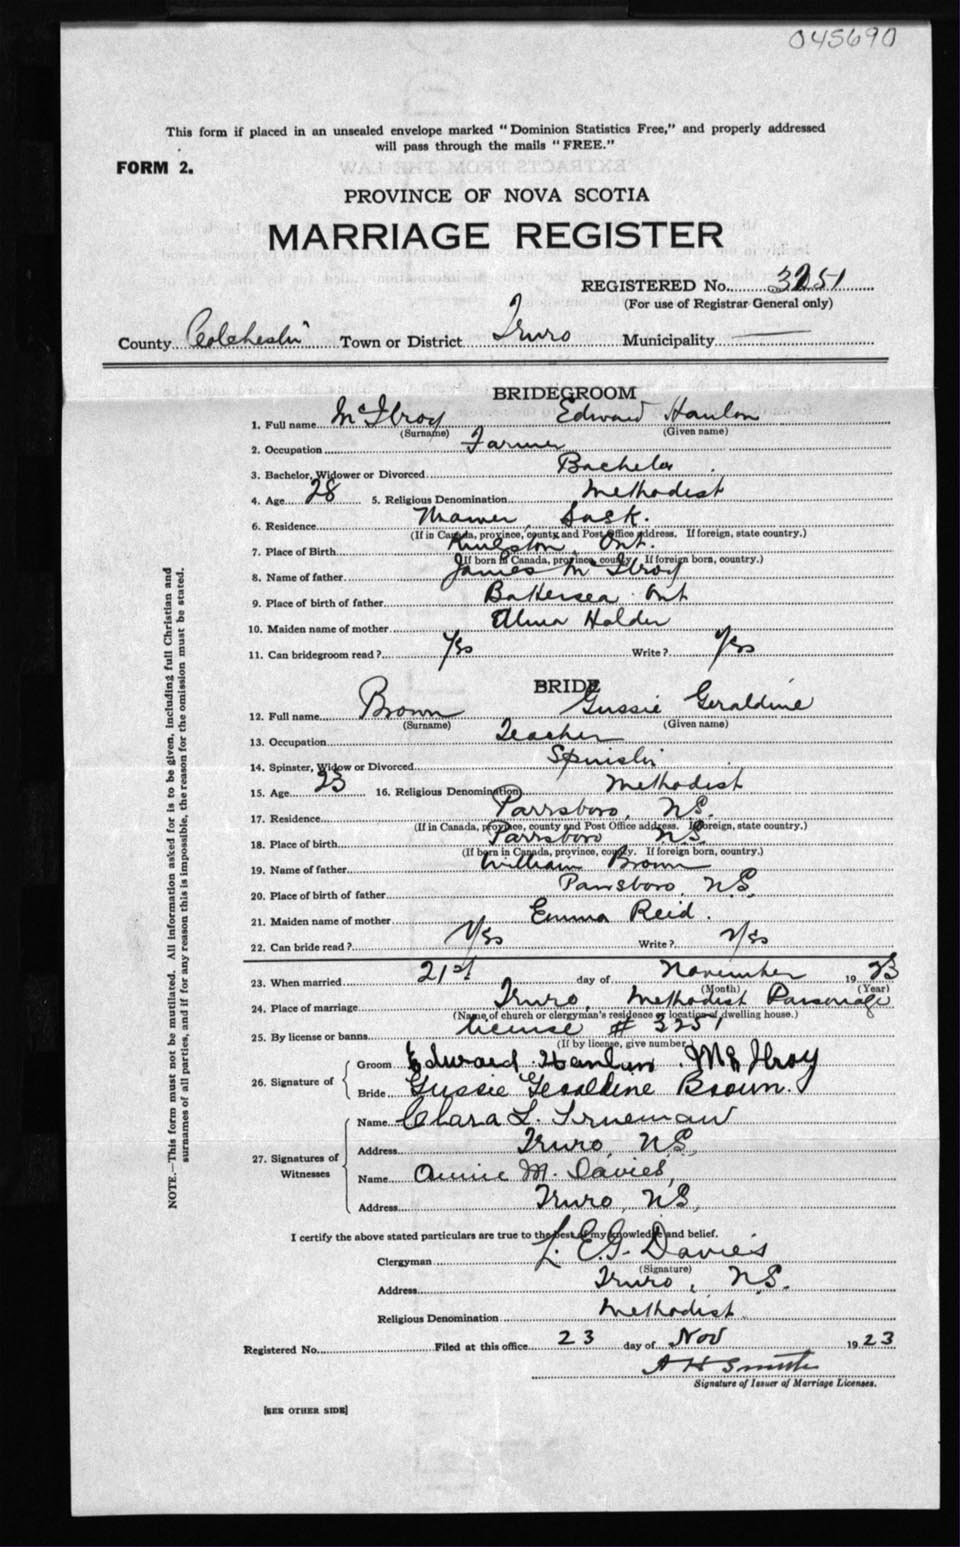 045690
This form if placed in an unsealed envelope marked "Dominion Statistics Free," and properly addressed
will pass through the mails "FREE."
FORM 2.
PROVINCE OF NOVA SCOTIA
MARRIAGE REGISTER
REGISTERED No. 3251
(For use of Registrar General only)
County Colchester Town or District Truro Municipality
BRIDEGROOM
1. Full name McIlroy Edward Hanlon
(Surname) (Given name)
2. Occupation Farmer
3. Bachelor, Widower or Divorced Bachelor
4. Age 28 5. Religious Denomination Methodist
6. Residence Mawer, Sask.
(If in Canada, province, county and Post Office address. If foreign, state country.)
7. Place of Birth Kingston, Ont.
(If born in Canada, province, county. If foreign born, country.)
8. Name of father James McIlroy
9. Place of birth of father Battersea Ont
10. Maiden name of mother Alma Holder
11. Can bridegroom read? Yes Write? Yes
BRIDE
12. Full name Brown Gussie Geraldine
(Surname) (Given name)
13. Occupation Teacher
14. Spinster, Widow or Divorced Spinster
15. Age 23 16. Religious Denomination Methodist
17. Residence Parrsboro, N.S.
(If in Canada, province, county and Post Office address. If foreign, state country.)
18. Place of birth Parrsboro N.S.
(If born in Canada, province, county. If foreign born, country.)
19. Name of father William Brown
20. Place of birth of father Parrsboro, N.S.
21. Maiden name of mother Emma Reid.
22. Can bride read? Yes Write? Yes
23. When married 21st day of November 1923
(Month) (Year)
24. Place of marriage Truro, Methodist Parsonage
(Name of church or clergyman's residence or location of dwelling house.)
25. By license or banns license # 3251
(If by license, give number)
26. Signature of Groom Edward Hanlon McIlroy
Bride Gussie Geraldine Brown.
27. Signatures of Witnesses
Name Clara L. Trueman
Address Truro, N.S.
Name Annie M. Davies
Address Truro, N.S.
I certify the above stated particulars are true to the best of my knowledge and belief.
Clergyman L. E. G. Davies
(Signature)
Address Truro, N.S.
Religious Denomination Methodist
Registered No. Filed at this office 23 day of Nov 1923
A H Smith
Signature of Issuer of Marriage Licenses.
[SEE OTHER SIDE]
NOTE.—This form must not be mutilated. All information asked for is to be given, including full Christian and
surnames of all parties, and if for any reason this is impossible, the reason for the omission must be stated.